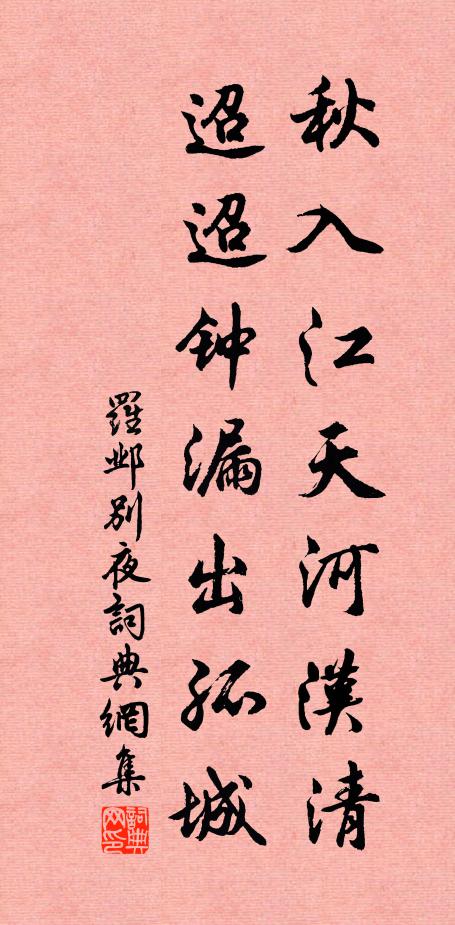 秋入江天河漢清
迢迢钟漏出孤城
羅邺别夜詞典網集
詞典网印